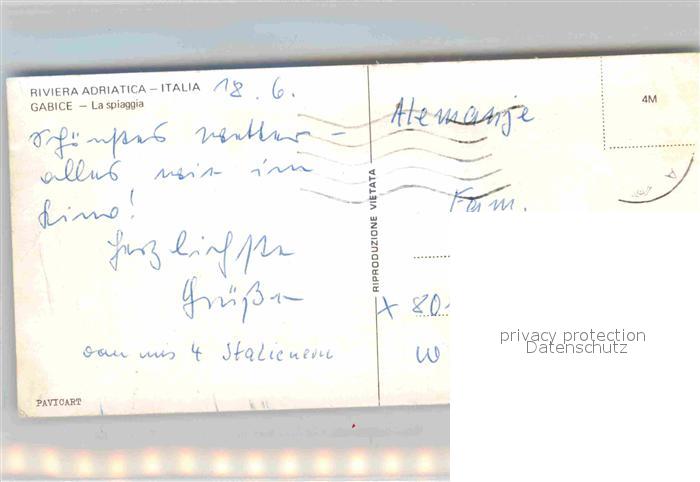 RIVIERA ADRIATICA – ITALIA 18.6.
GABICE – La spiaggia
Schönstes Wetter –
alles wie im
Kino!
Herzlichste
Grüße
von uns 4 Italienern
PAVICART
RIPRODUZIONE VIETATA
Alemanje
Fam.
X 80
W
4M
privacy protection
Datenschutz